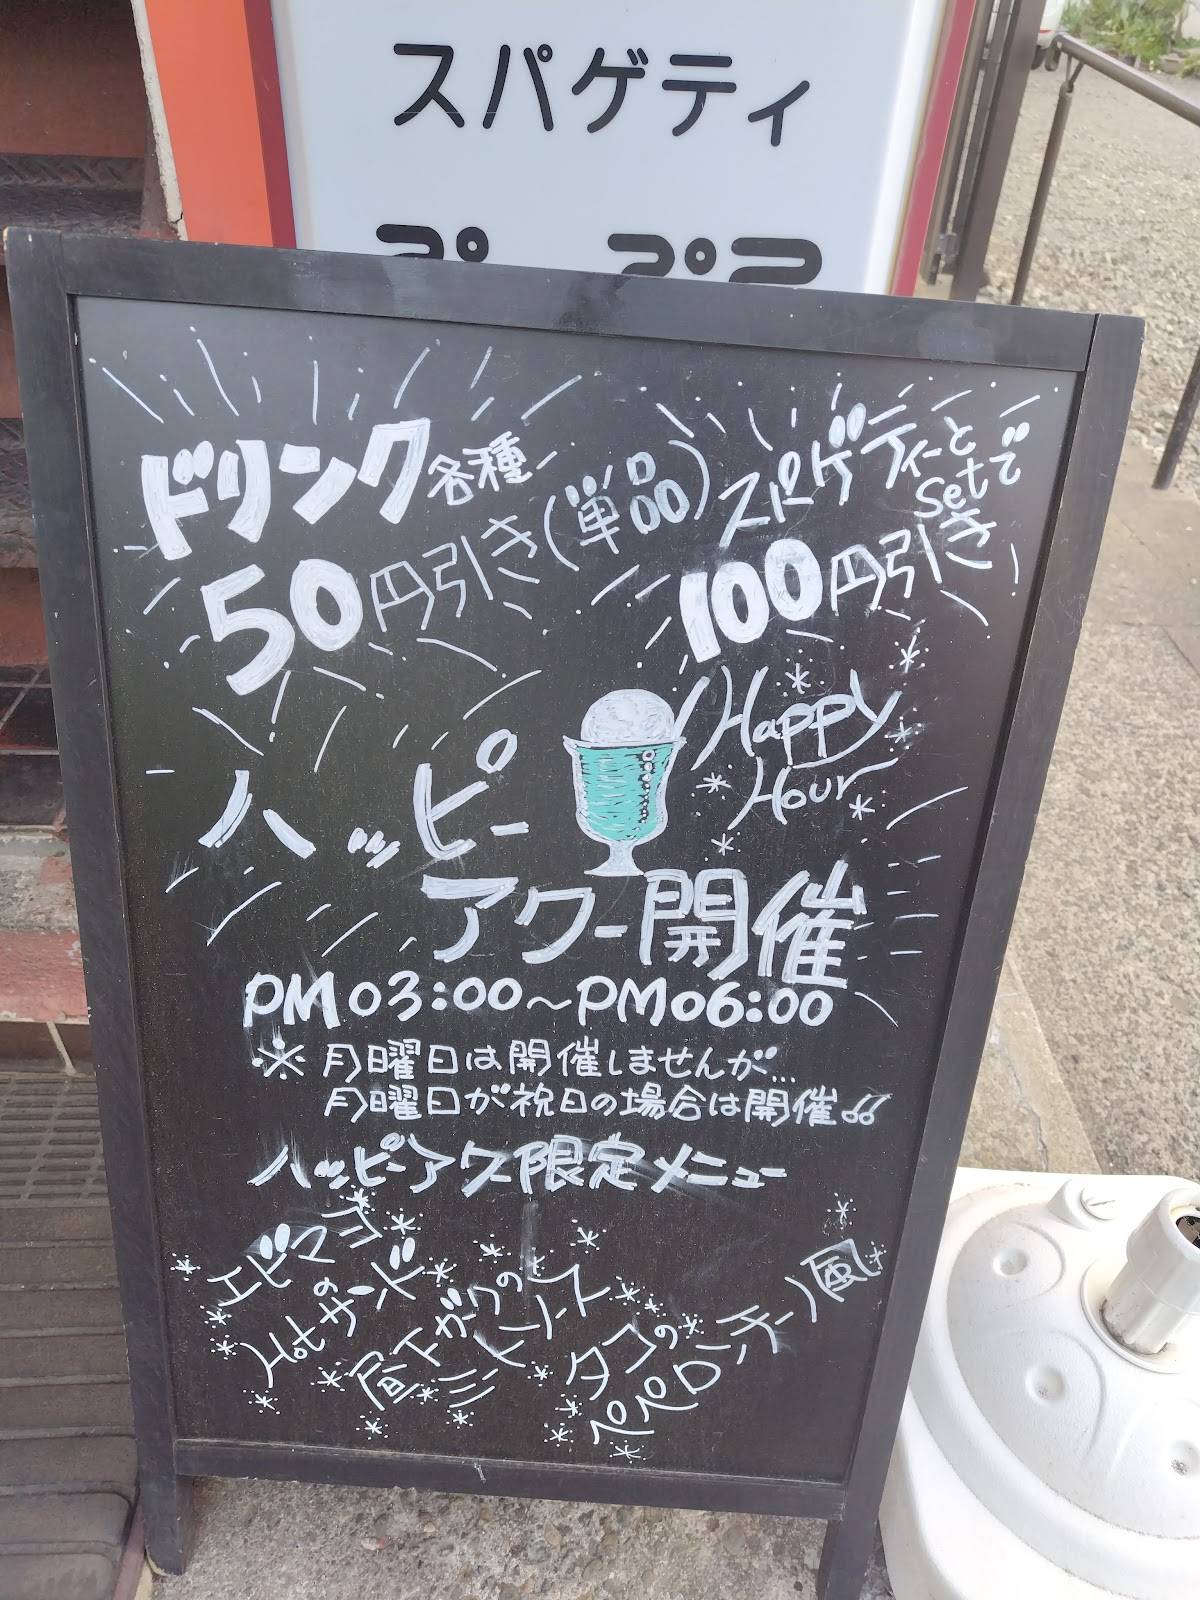 スパゲティ
ドリンク各種
50円引き(単品)
スパゲティーと
Setで
100円引き
Happy
Hour
ハッピー
アワー開催
PM03:00〜PM06:00
※月曜日は開催しませんが…
月曜日が祝日の場合は開催!!
ハッピーアワー限定メニュー
エビマヨ
の
Hotサンド
タコの
ペペロンチーノ風